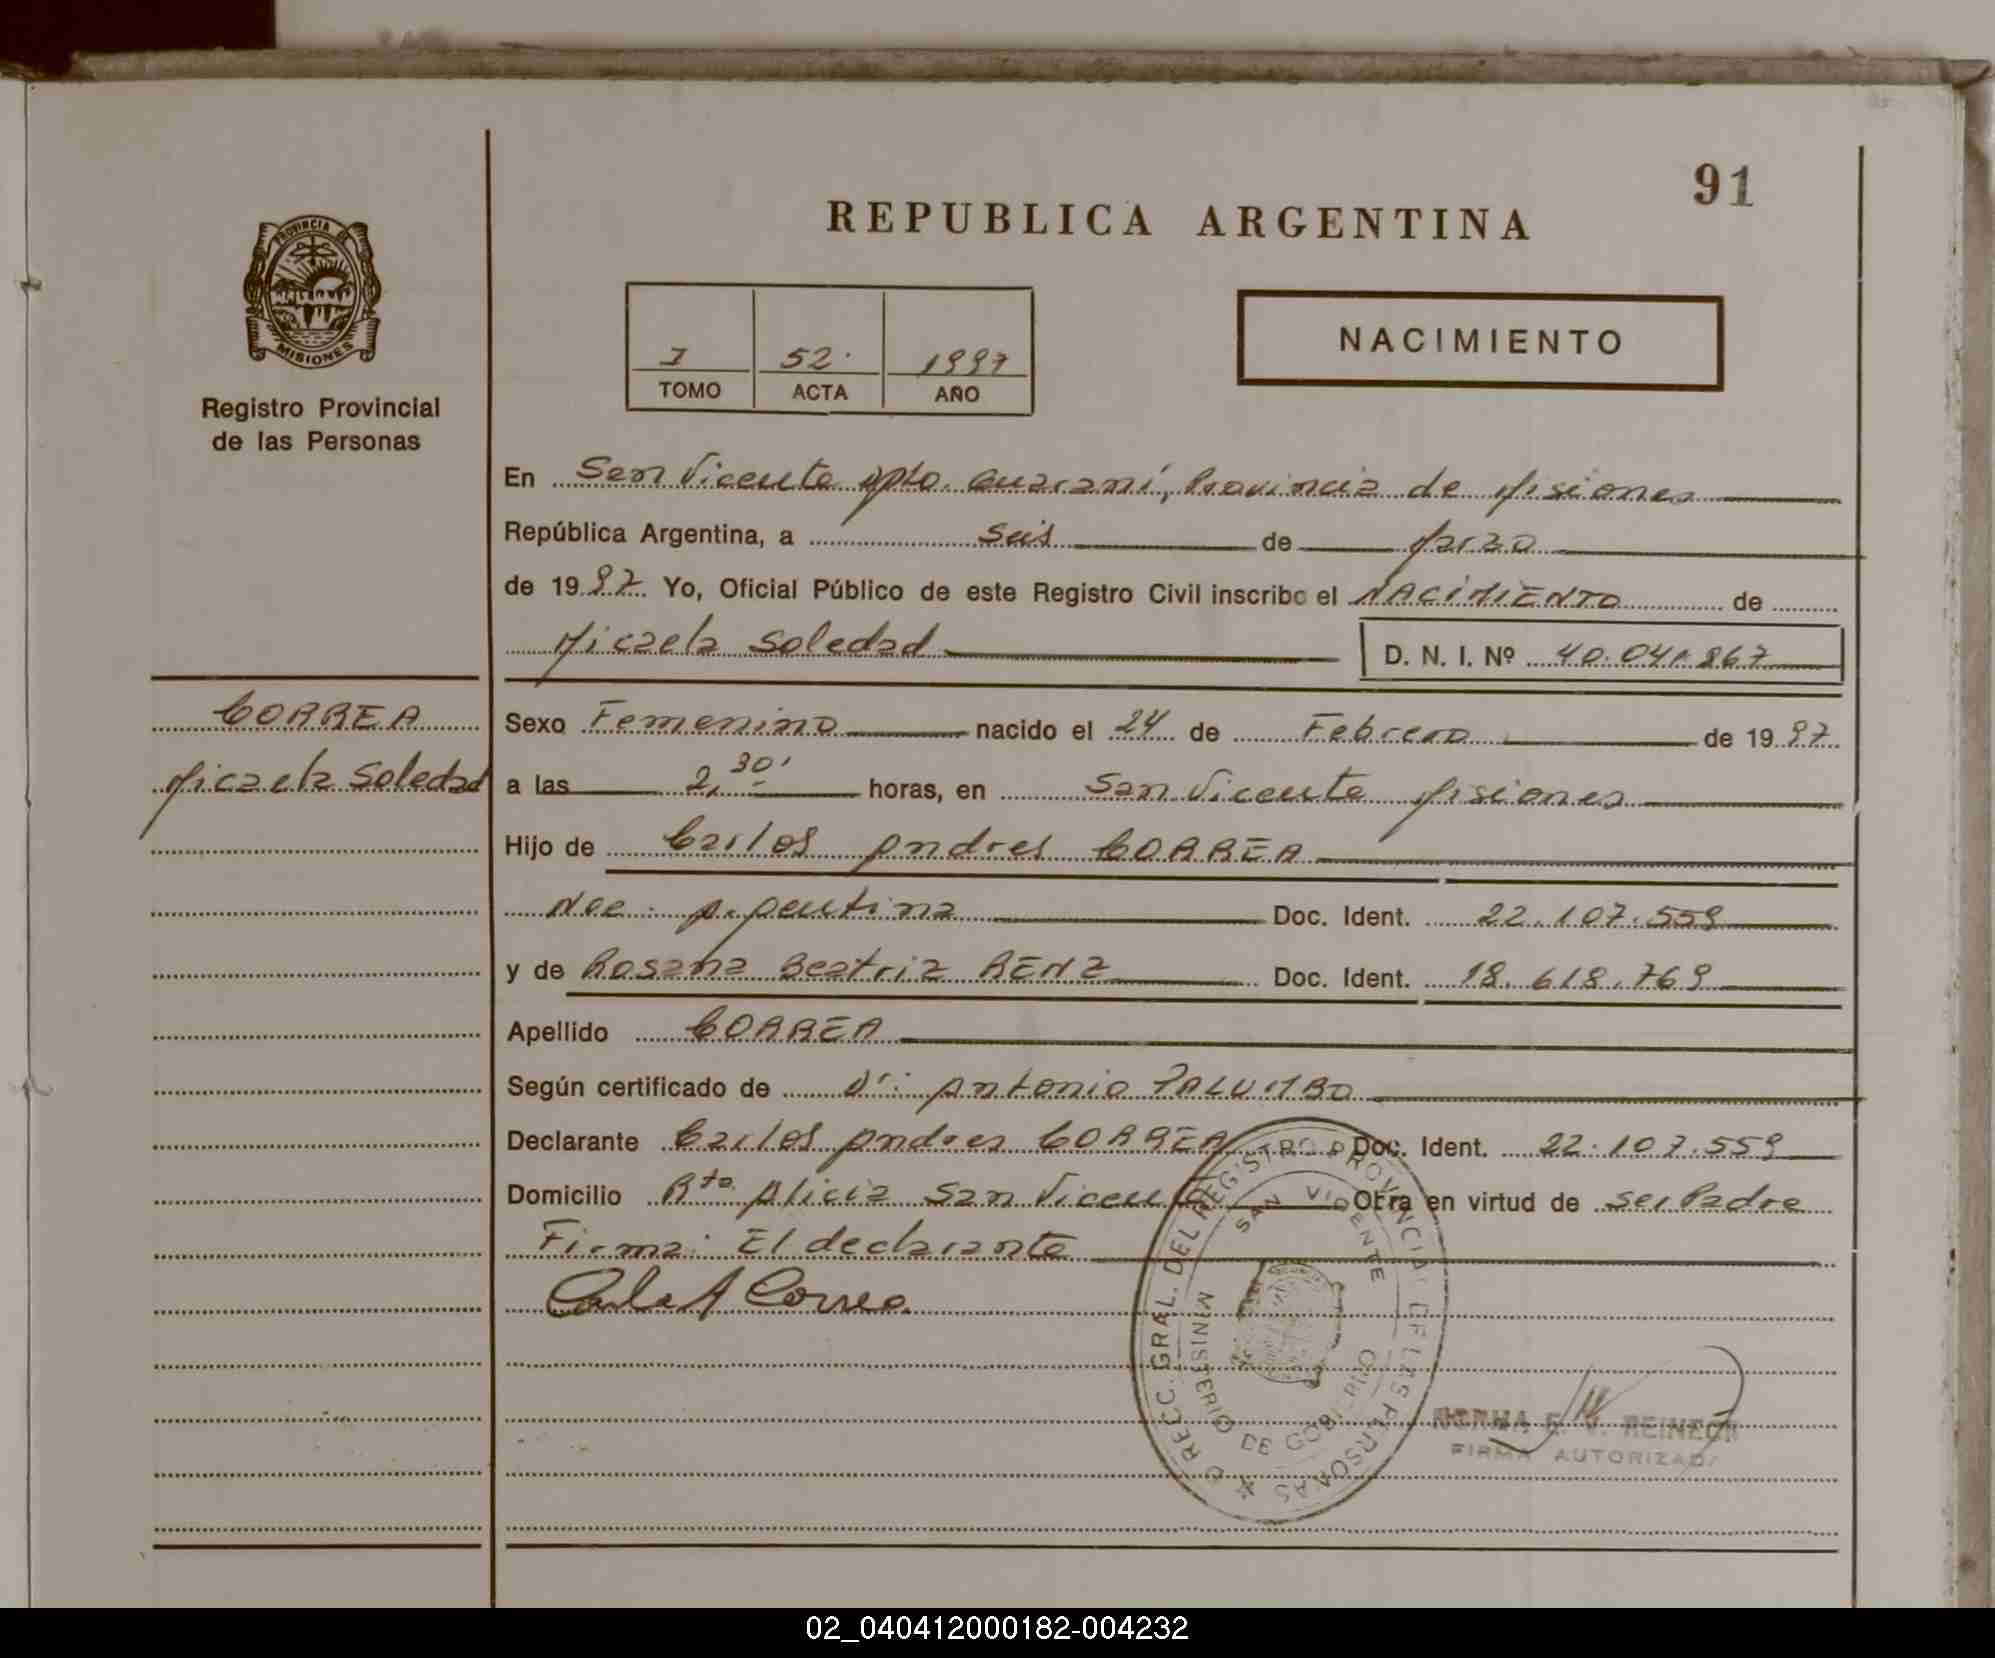 91
REPUBLICA ARGENTINA
PROVINCIA DE
MISIONES
Registro Provincial
de las Personas
I 52. 1997
TOMO ACTA AÑO
NACIMIENTO
En San Vicente Dpto. Guaraní, Provincia de Misiones
República Argentina, a Seis de Marzo
de 1997. Yo, Oficial Público de este Registro Civil inscribo el NACIMIENTO de
Micaela Soledad D. N. I. Nº 40.041.867
CORREA
Micaela Soledad
Sexo Femenino nacido el 24 de Febrero de 1997.
a las 2,30' horas, en San Vicente Misiones
Hijo de Carlos Andres CORREA
Nac. Argentina Doc. Ident. 22.107.559
y de Rosana Beatriz RENZ Doc. Ident. 18.618.769
Apellido CORREA
Según certificado de Dr: Antonio PALUMBO
Declarante Carlos Andres CORREA Doc. Ident. 22.107.559
Domicilio Rto. Alicia San Vicente Obra en virtud de ser Padre
Firma: El declarante
Carlos A Correa
DIRECC. GRAL. DEL REGISTRO PROVINCIAL DE LAS PERSONAS
SAN VICENTE
MINISTERIO DE GOBIERNO
NORMA E. V. REINECK
FIRMA AUTORIZADA
02_040412000182-004232